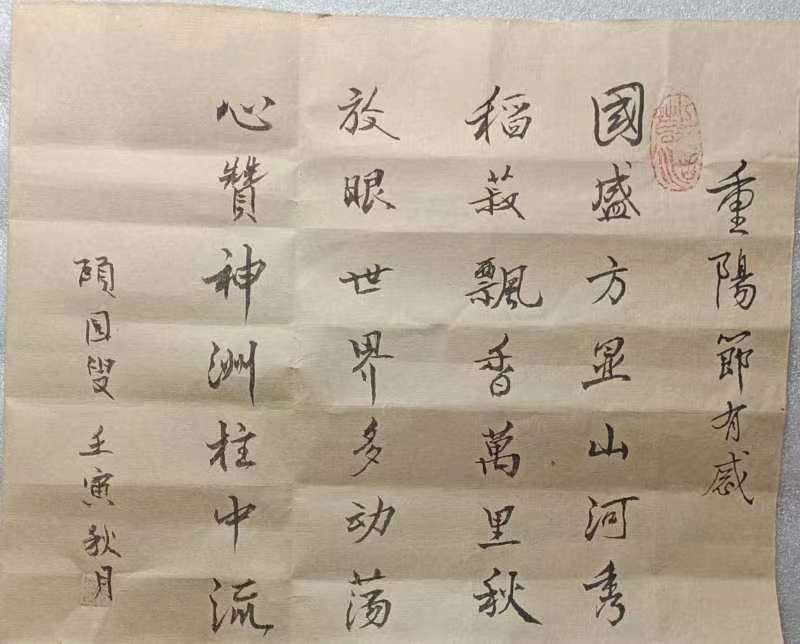 重陽節有感
國盛方显山河秀
稻菽飄香萬里秋
放眼世界多动荡
心贊神洲柱中流
頤园叟 壬寅秋月